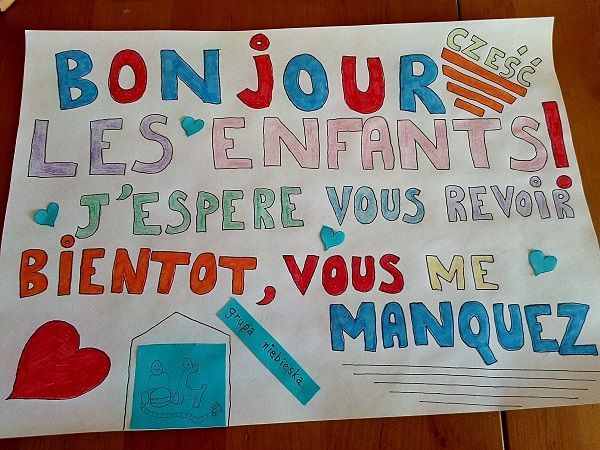 BONJOUR
CZEŚĆ
LES ENFANTS!
J'ESPERE VOUS REVOIR
BIENTOT, VOUS ME
MANQUEZ
grupa niebieska